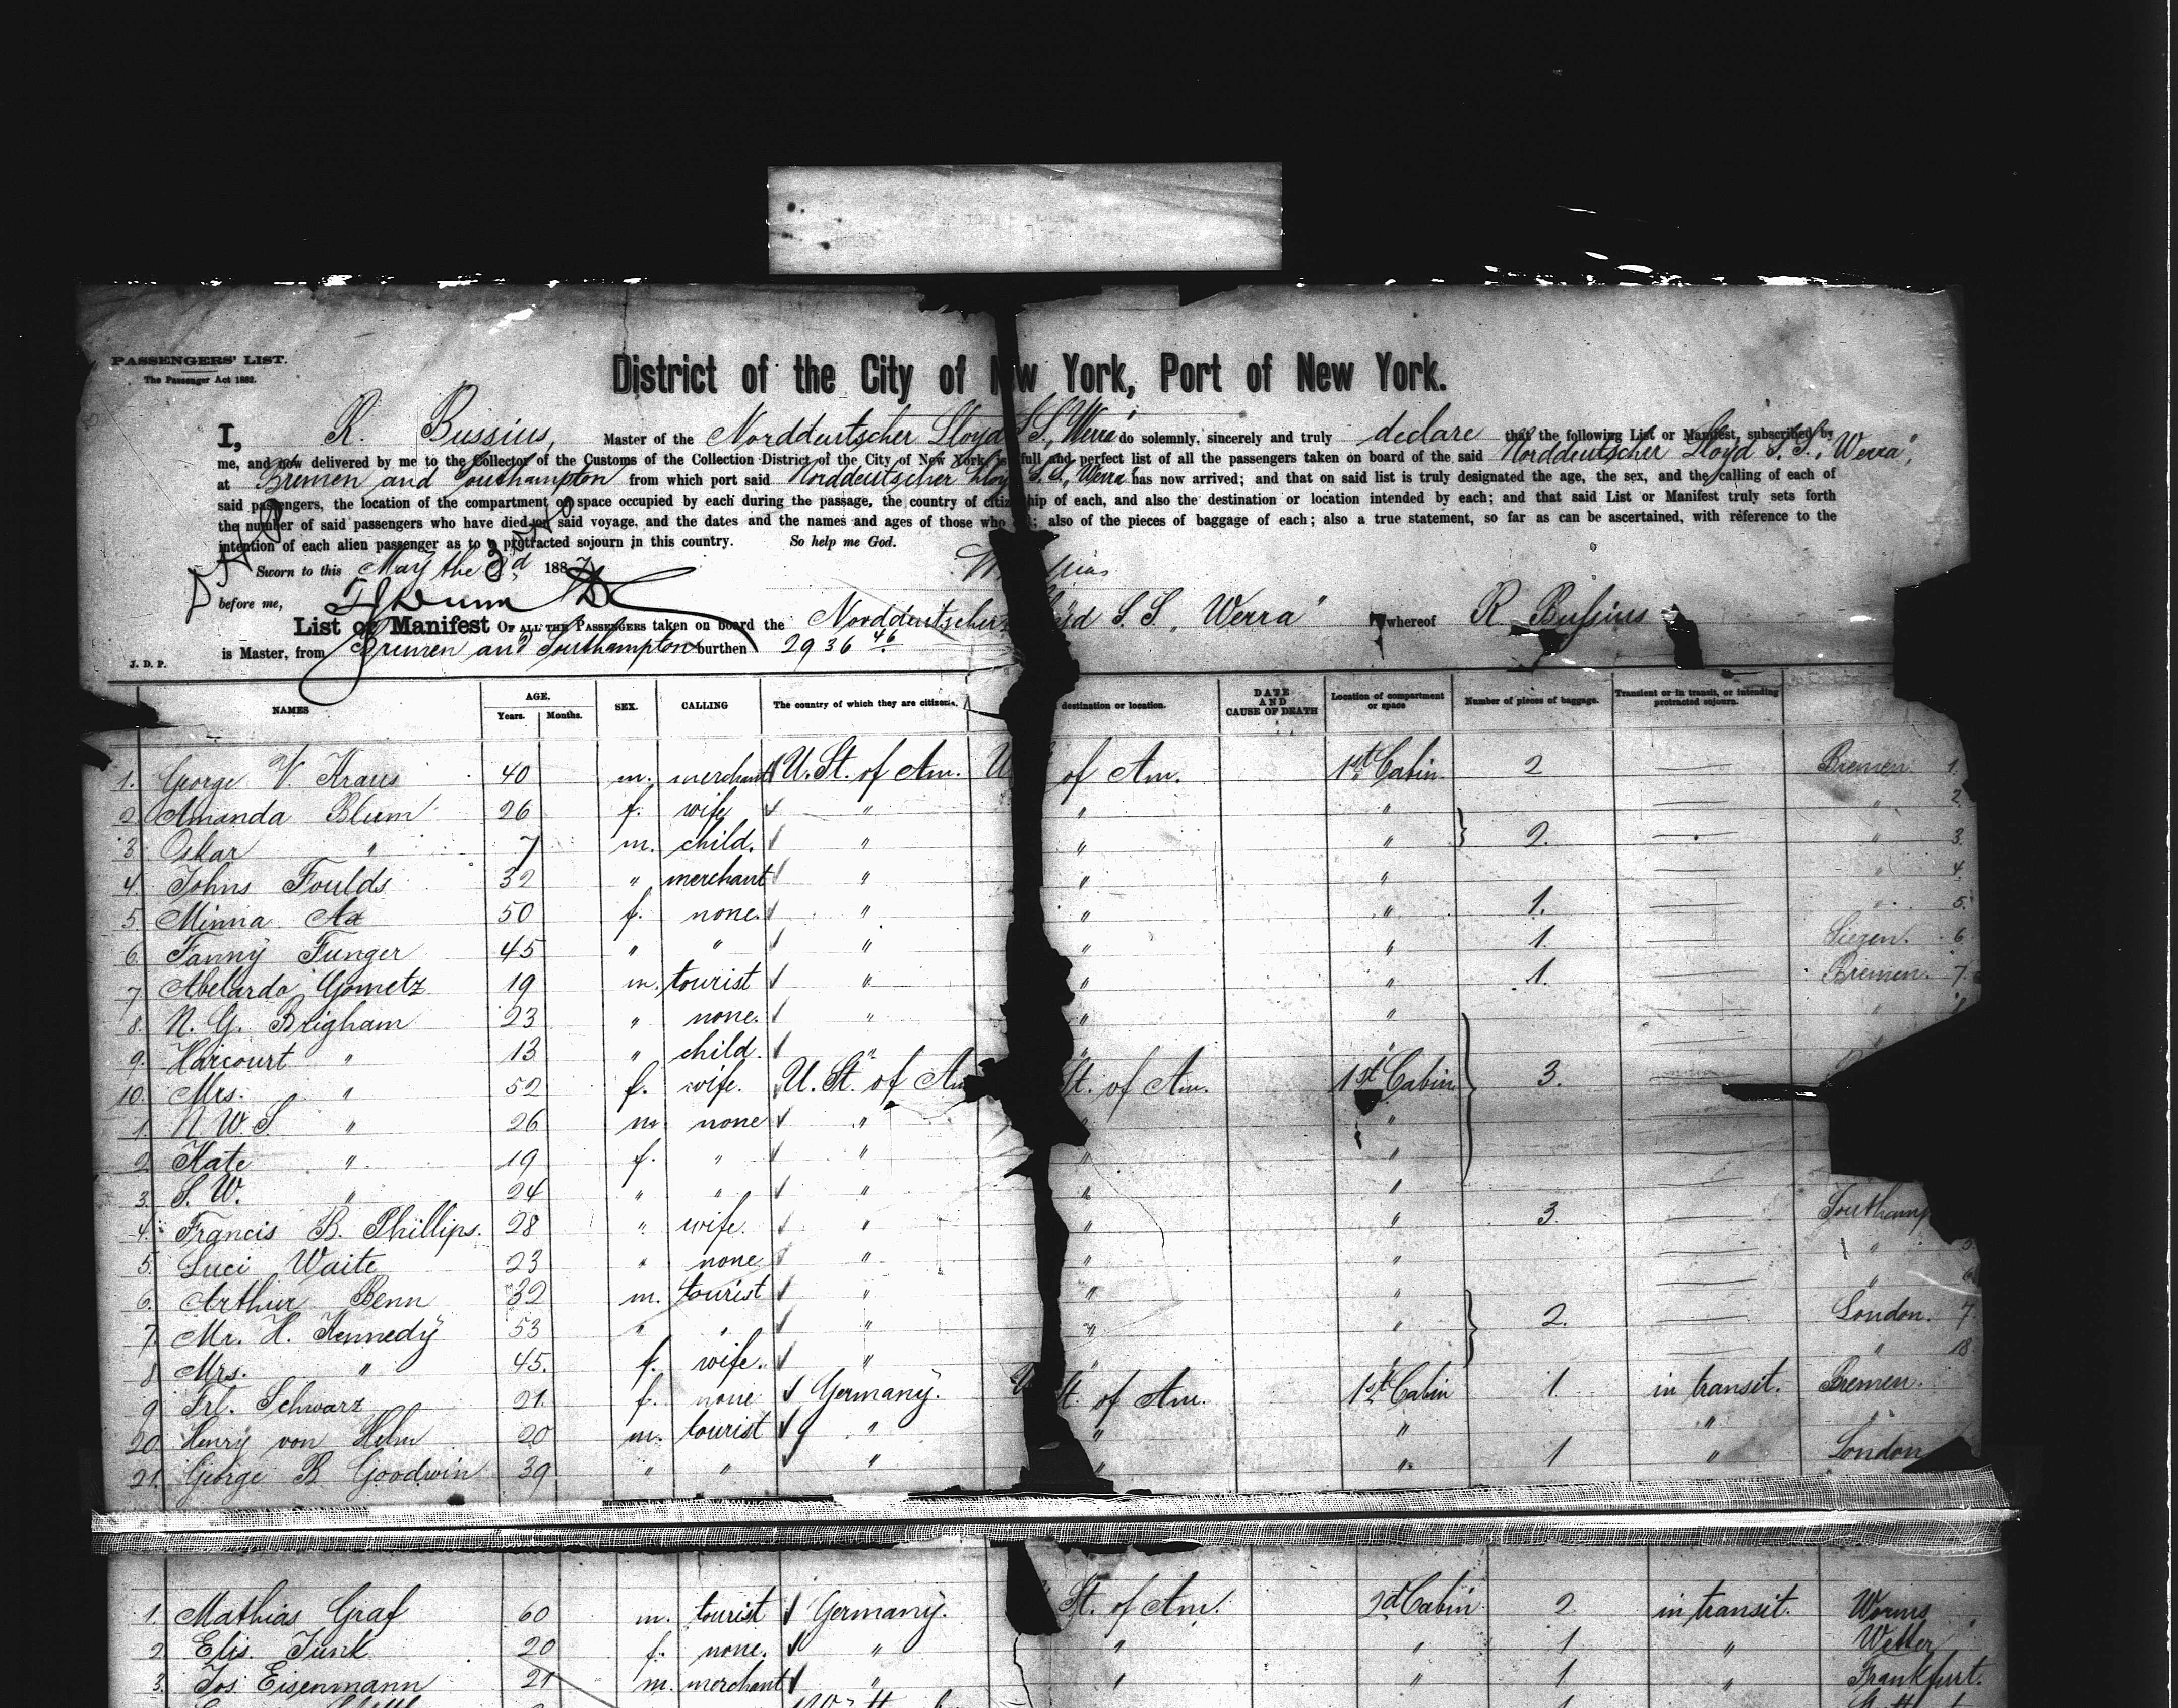 PASSENGERS' LIST.
The Passenger Act 1882.
District of the City of New York, Port of New York.
I, R. Bussius, Master of the Norddeutscher Lloyd S.S. „Werra" do solemnly, sincerely and truly declare that the following List or Manifest, subscribed by
me, and now delivered by me to the Collector of the Customs of the Collection District of the City of New York, is full and perfect list of all the passengers taken on board of the said Norddeutscher Lloyd S.S. „Werra",
at Bremen and Southampton from which port said Norddeutscher Lloyd S.S. „Werra" has now arrived; and that on said list is truly designated the age, the sex, and the calling of each of
said passengers, the location of the compartment or space occupied by each during the passage, the country of citizenship of each, and also the destination or location intended by each; and that said List or Manifest truly sets forth
the number of said passengers who have died on said voyage, and the dates and the names and ages of those who ; also of the pieces of baggage of each; also a true statement, so far as can be ascertained, with reference to the
intention of each alien passenger as to a protracted sojourn in this country. So help me God.
Sworn to this May the 3d 1887
before me,
List or Manifest OF ALL THE PASSENGERS taken on board the Norddeutscher Lloyd S.S. „Werra" whereof R. Bussius
is Master, from Bremen and Southampton burthen 2936 46
J. D. P.
NAMES AGE. Years. Months. SEX. CALLING The country of which they are citizens. destination or location. DATE AND CAUSE OF DEATH Location of compartment or space Number of pieces of baggage. Transient or in transit, or intending protracted sojourn.
1. George V. Kraus 40 m. merchant U. St. of Am. U of Am. 1st Cabin 2 Bremen. 1.
2. Amanda Blum 26 f. wife " " " " 2.
3 Oskar " 7 m. child. " " " 2. " 3.
4. Johns Foulds 32 " merchant " " " " 4.
5 Minna Ax 50 f. none. " " " 1. " 5.
6. Fanny Funger 45 " " " " " 1. Siegen. 6
7. Abelardo Gometz 19 m. tourist " " " 1. Bremen. 7.
8. N. G. Brigham 23 " none. " " " "
9. Harcourt " 13 " child. " " "
10. Mrs. " 52 f. wife. U. St. of Am St. of Am. 1st Cabin 3.
1. N. W. S. " 26 m. none " " "
2. Kate " 19 f. " " " "
3. S. W. " 24 " " " " "
4. Francis B. Phillips. 28 " wife. " " " 3. Southamp
5. Luci Waite 23 " none " " " " 5.
6. Arthur Benn 32 m. tourist " " " " 6.
7. Mr. H. Kennedy 53 " " " " " 2. London. 7.
8 Mrs. " 45. f. wife. " " " " 18.
9 Frl. Schwarz 21. f. none Germany. St. of Am. 1st Cabin 1 in transit. Bremen.
20. Henry von Helm 20 m. tourist " " " " "
21. George B Goodwin 39 " " " " " 1 " London
1. Mathias Graf 60 m. tourist Germany. St. of Am. 2d Cabin 2. in transit. Worms
2. Elis. Junk 20 f. none. " " " 1 " Wetter
3. Jos. Eisenmann 21 m. merchant " " " 1 " Frankfurt.